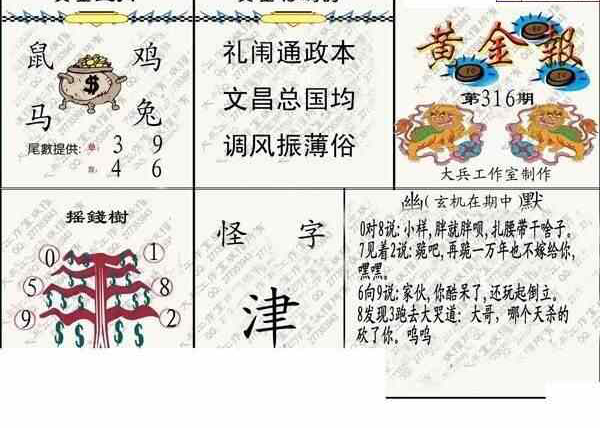 鼠 鸡
$
马 兔
尾數提供: 单: 3 9
双: 4 6
礼闹通政本
文昌总国均
调风振薄俗
黄金報
第316期
大兵工作室制作
摇錢樹
0 1
5 8
9 2
怪 字
津
幽(玄机在期中)默
0对8说: 小样, 胖就胖呗, 扎腰带干啥子。
7见着2说: 跪吧, 再跪一万年也不嫁给你,
嘿嘿。
6向9说: 家伙, 你酷呆了, 还玩起倒立。
8发现3跑去大哭道: 大哥, 哪个天杀的
砍了你。呜呜